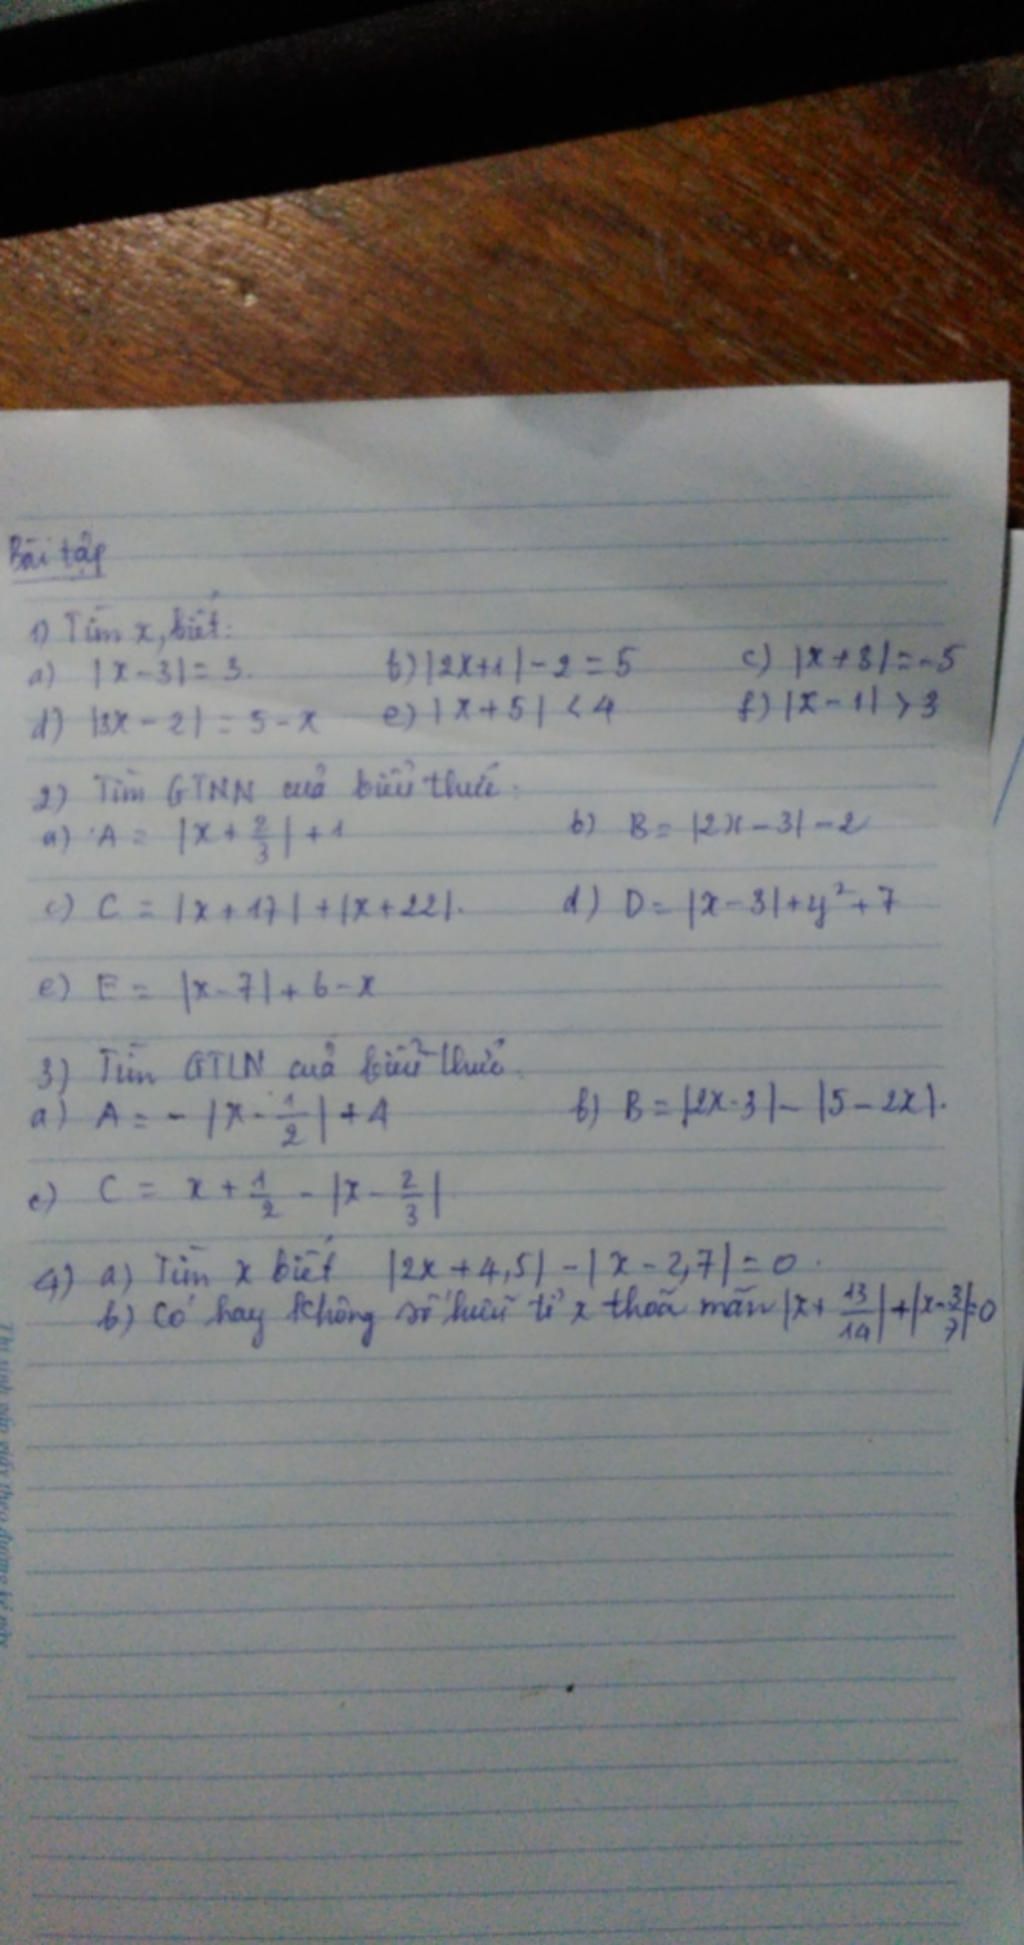 Bài tập
1) Tìm x, biết:
a) |x-3| = 3. b) |2x+1| - 2 = 5 c) |x+3| = -5
d) |3x-2| = 5-x e) |x+5| < 4 f) |x-1| > 3
2) Tìm GTNN của biểu thức.
a) A = |x + 2/3| + 1 b) B = |2x-3| - 2
c) C = |x+17| + |x+22|. d) D = |x-3| + y² + 7
e) E = |x-7| + 6 - x
3) Tìm GTLN của biểu thức.
a) A = - |x - 1/2| + 4 b) B = |2x-3| - |5-2x|.
c) C = x + 1/2 - |x - 2/3|
4) a) Tìm x biết |2x+4,5| - |x-2,7| = 0.
b) Có hay không số hữu tỉ x thoã mãn |x + 13/14| + |x - 3/7| = 0
Thí sinh